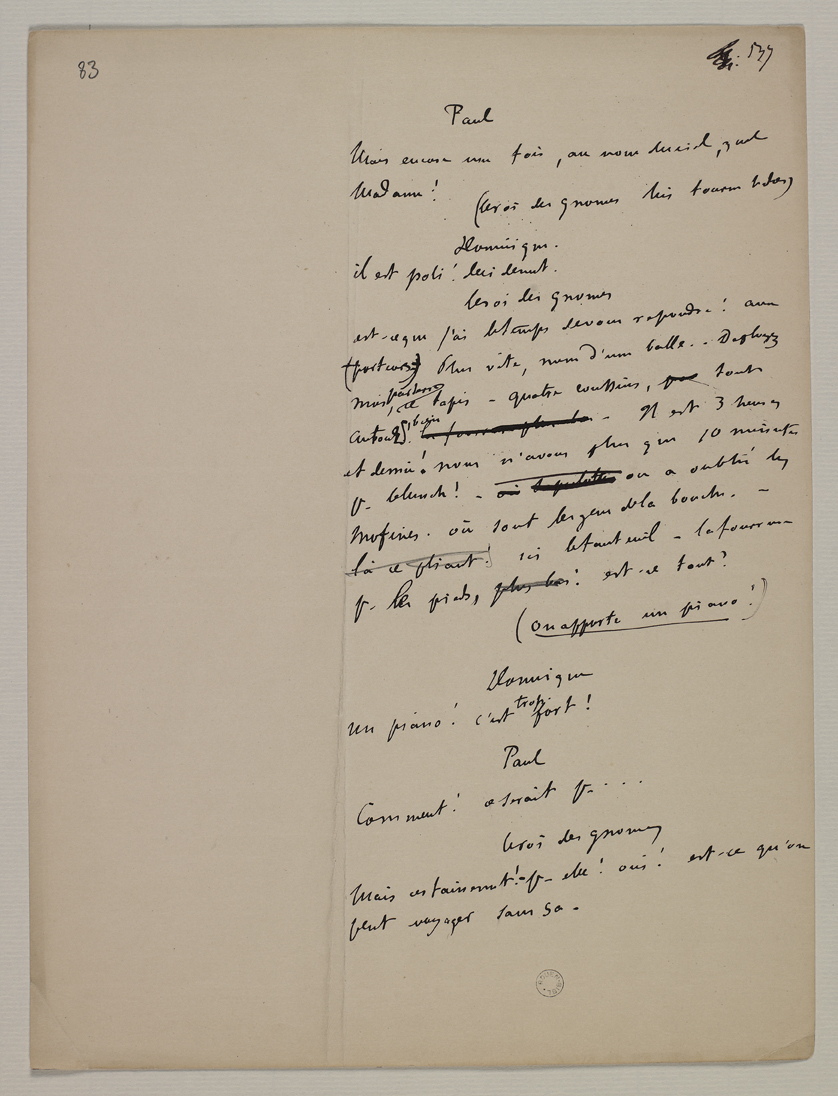 83
537
Paul
Mais encore une fois, au nom du ciel, quel
Madame!
(le roi des gnomes lui tourne le dos)
Dominique.
il est poli! celui-là
le roi des gnomes
est-ce que j'ai le temps de vous répondre! aux
(porteurs) Plus vite, nom d'une balle. - Deployez
moi, ce tapis - quatre coussins, tout
autour, bien - Il est 3 heures
et demie! nous n'avons plus que 10 minutes
p. - on a oublié les
où sont les gens de la bouche. -
là ce pliant! ici le fauteuil - la fourrure
p. les pieds, plus bas! est-ce tout?
(on apporte un piano!)
Dominique
un piano! c'est trop fort!
Paul
Comment! ce serait p. ...
le roi des gnomes
Mais certainement! - p. elle! oui! est-ce qu'on
peut voyager sans ça -